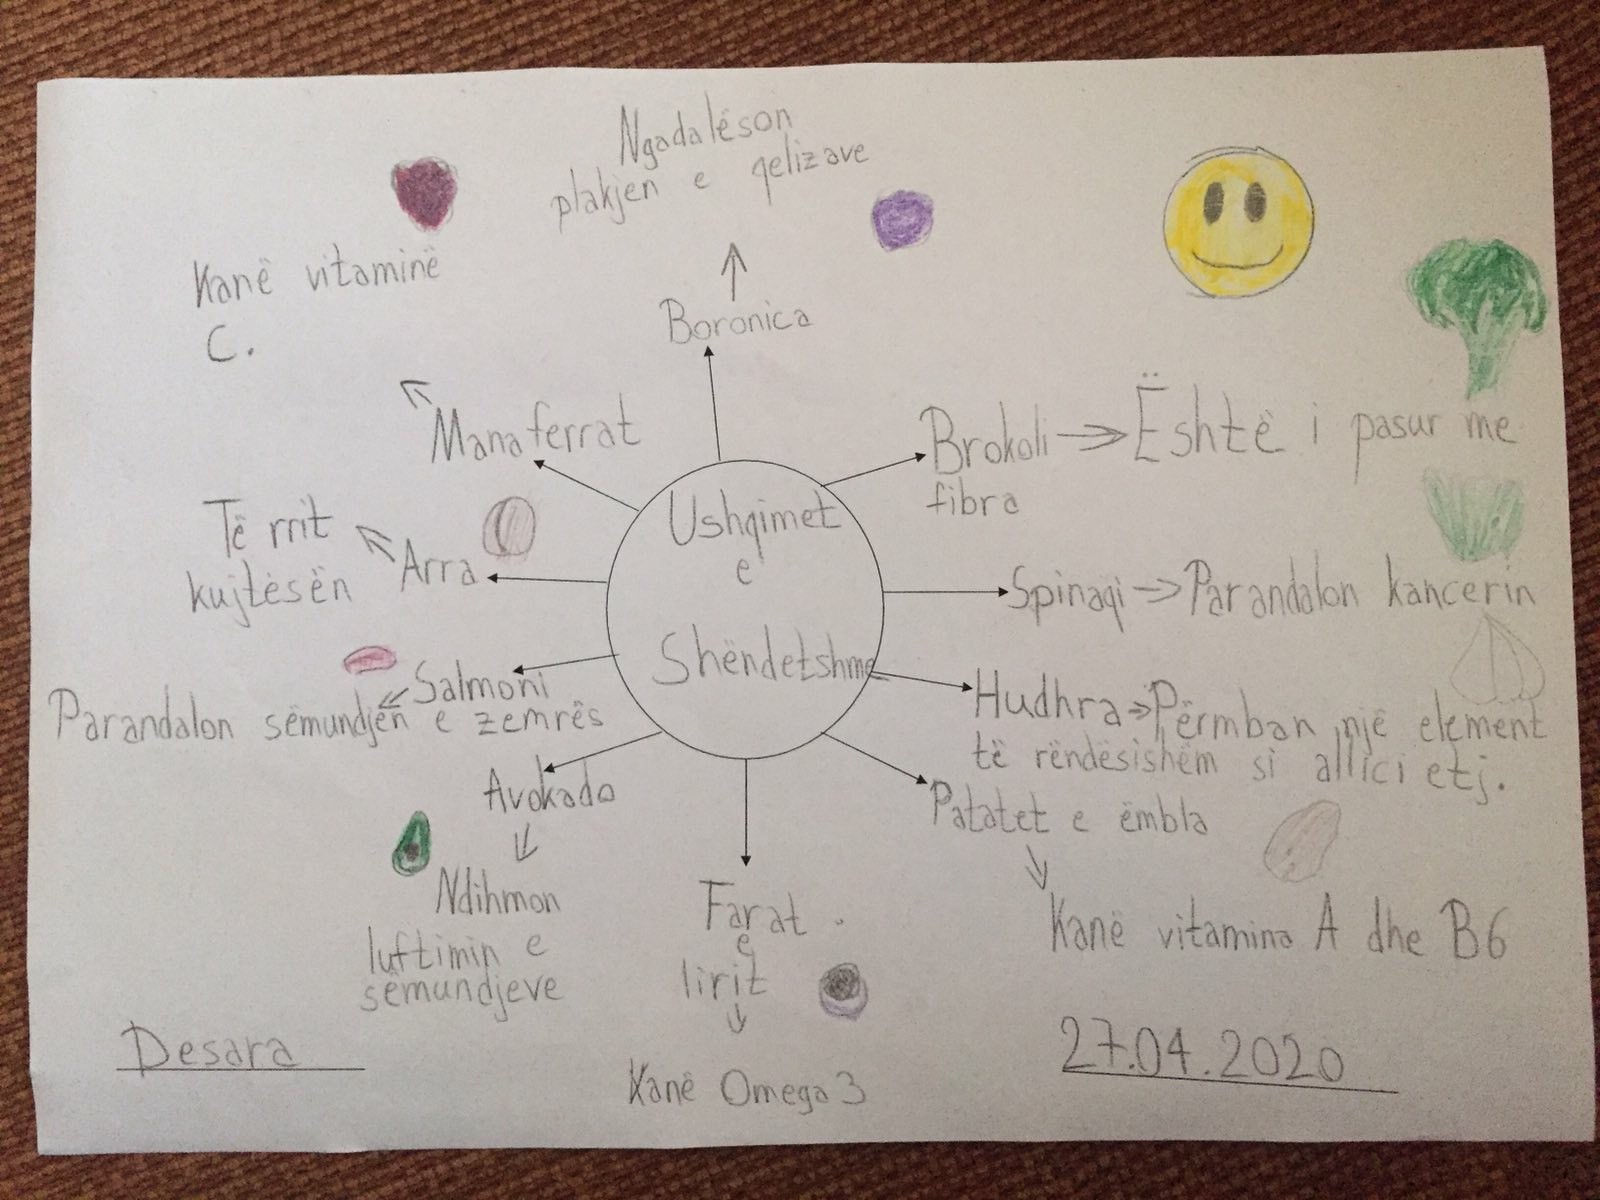 Ngadalëson
plakjen e qelizave
Kanë vitaminë
C.
Boronica
Manaferrat
Brokoli Është i pasur me
fibra
Të rrit
kujtësën
Arra
Ushqimet
e
Shëndetshme
Spinaqi Parandalon kancerin
Salmoni
Parandalon sëmundjen e zemrës
Hudhra Përmban një element
të rëndësishëm si allici etj.
Avokado
Patatet e ëmbla
Ndihmon
luftimin e
sëmundjeve
Farat
e
lirit
Kanë vitamina A dhe B6
Desara
27.04.2020
Kanë Omega 3